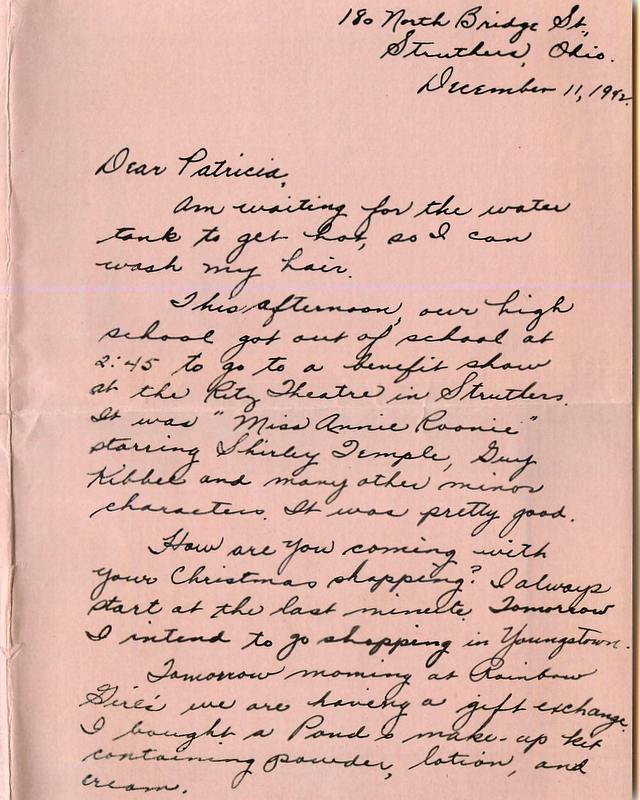 180 North Bridge St.,
Struthers, Ohio.
December 11, 1942.
Dear Patricia,
Am waiting for the water
tank to get hot, so I can
wash my hair.
This afternoon, our high
school got out of school at
2:45 to go to a benefit show
at the Ritz Theatre in Struthers.
It was "Miss Annie Roonie"
starring Shirley Temple, Guy
Kibbee and many other minor
characters. It was pretty good.
How are you coming with
your Christmas shopping? I always
start at the last minute. Tomorrow
I intend to go shopping in Youngstown.
Tomorrow morning at Rainbow
Girls' we are having a gift exchange.
I bought a Pond's make-up kit
containing powder, lotion, and
cream.